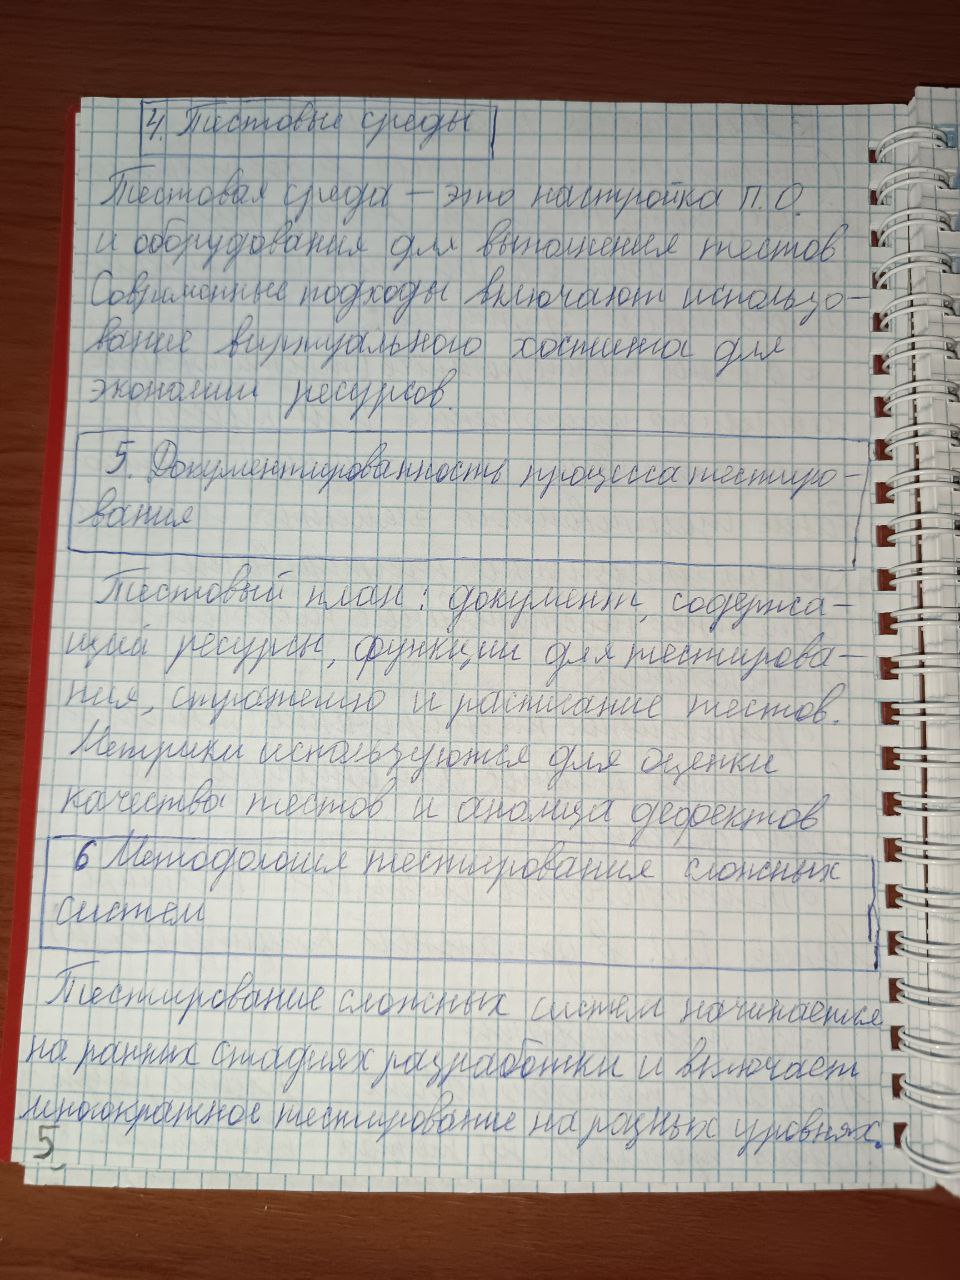 4. Тестовые среды
Тестовая среда — это настройка П.О.
и оборудования для выполнения тестов
Современные подходы включают использо-
вание виртуального хостинга для
экономии ресурсов.
5. Документированность процесса тестиро-
вания
Тестовый план: документ, содержа-
щий ресурсы, функции для тестирова-
ния, стратегию и расписание тестов.
Метрики используются для оценки
качества тестов и анализа дефектов
6 Методология тестирования сложных
систем
Тестирование сложных систем начинается
на ранних стадиях разработки и включает
многократное тестирование на разных уровнях.
5